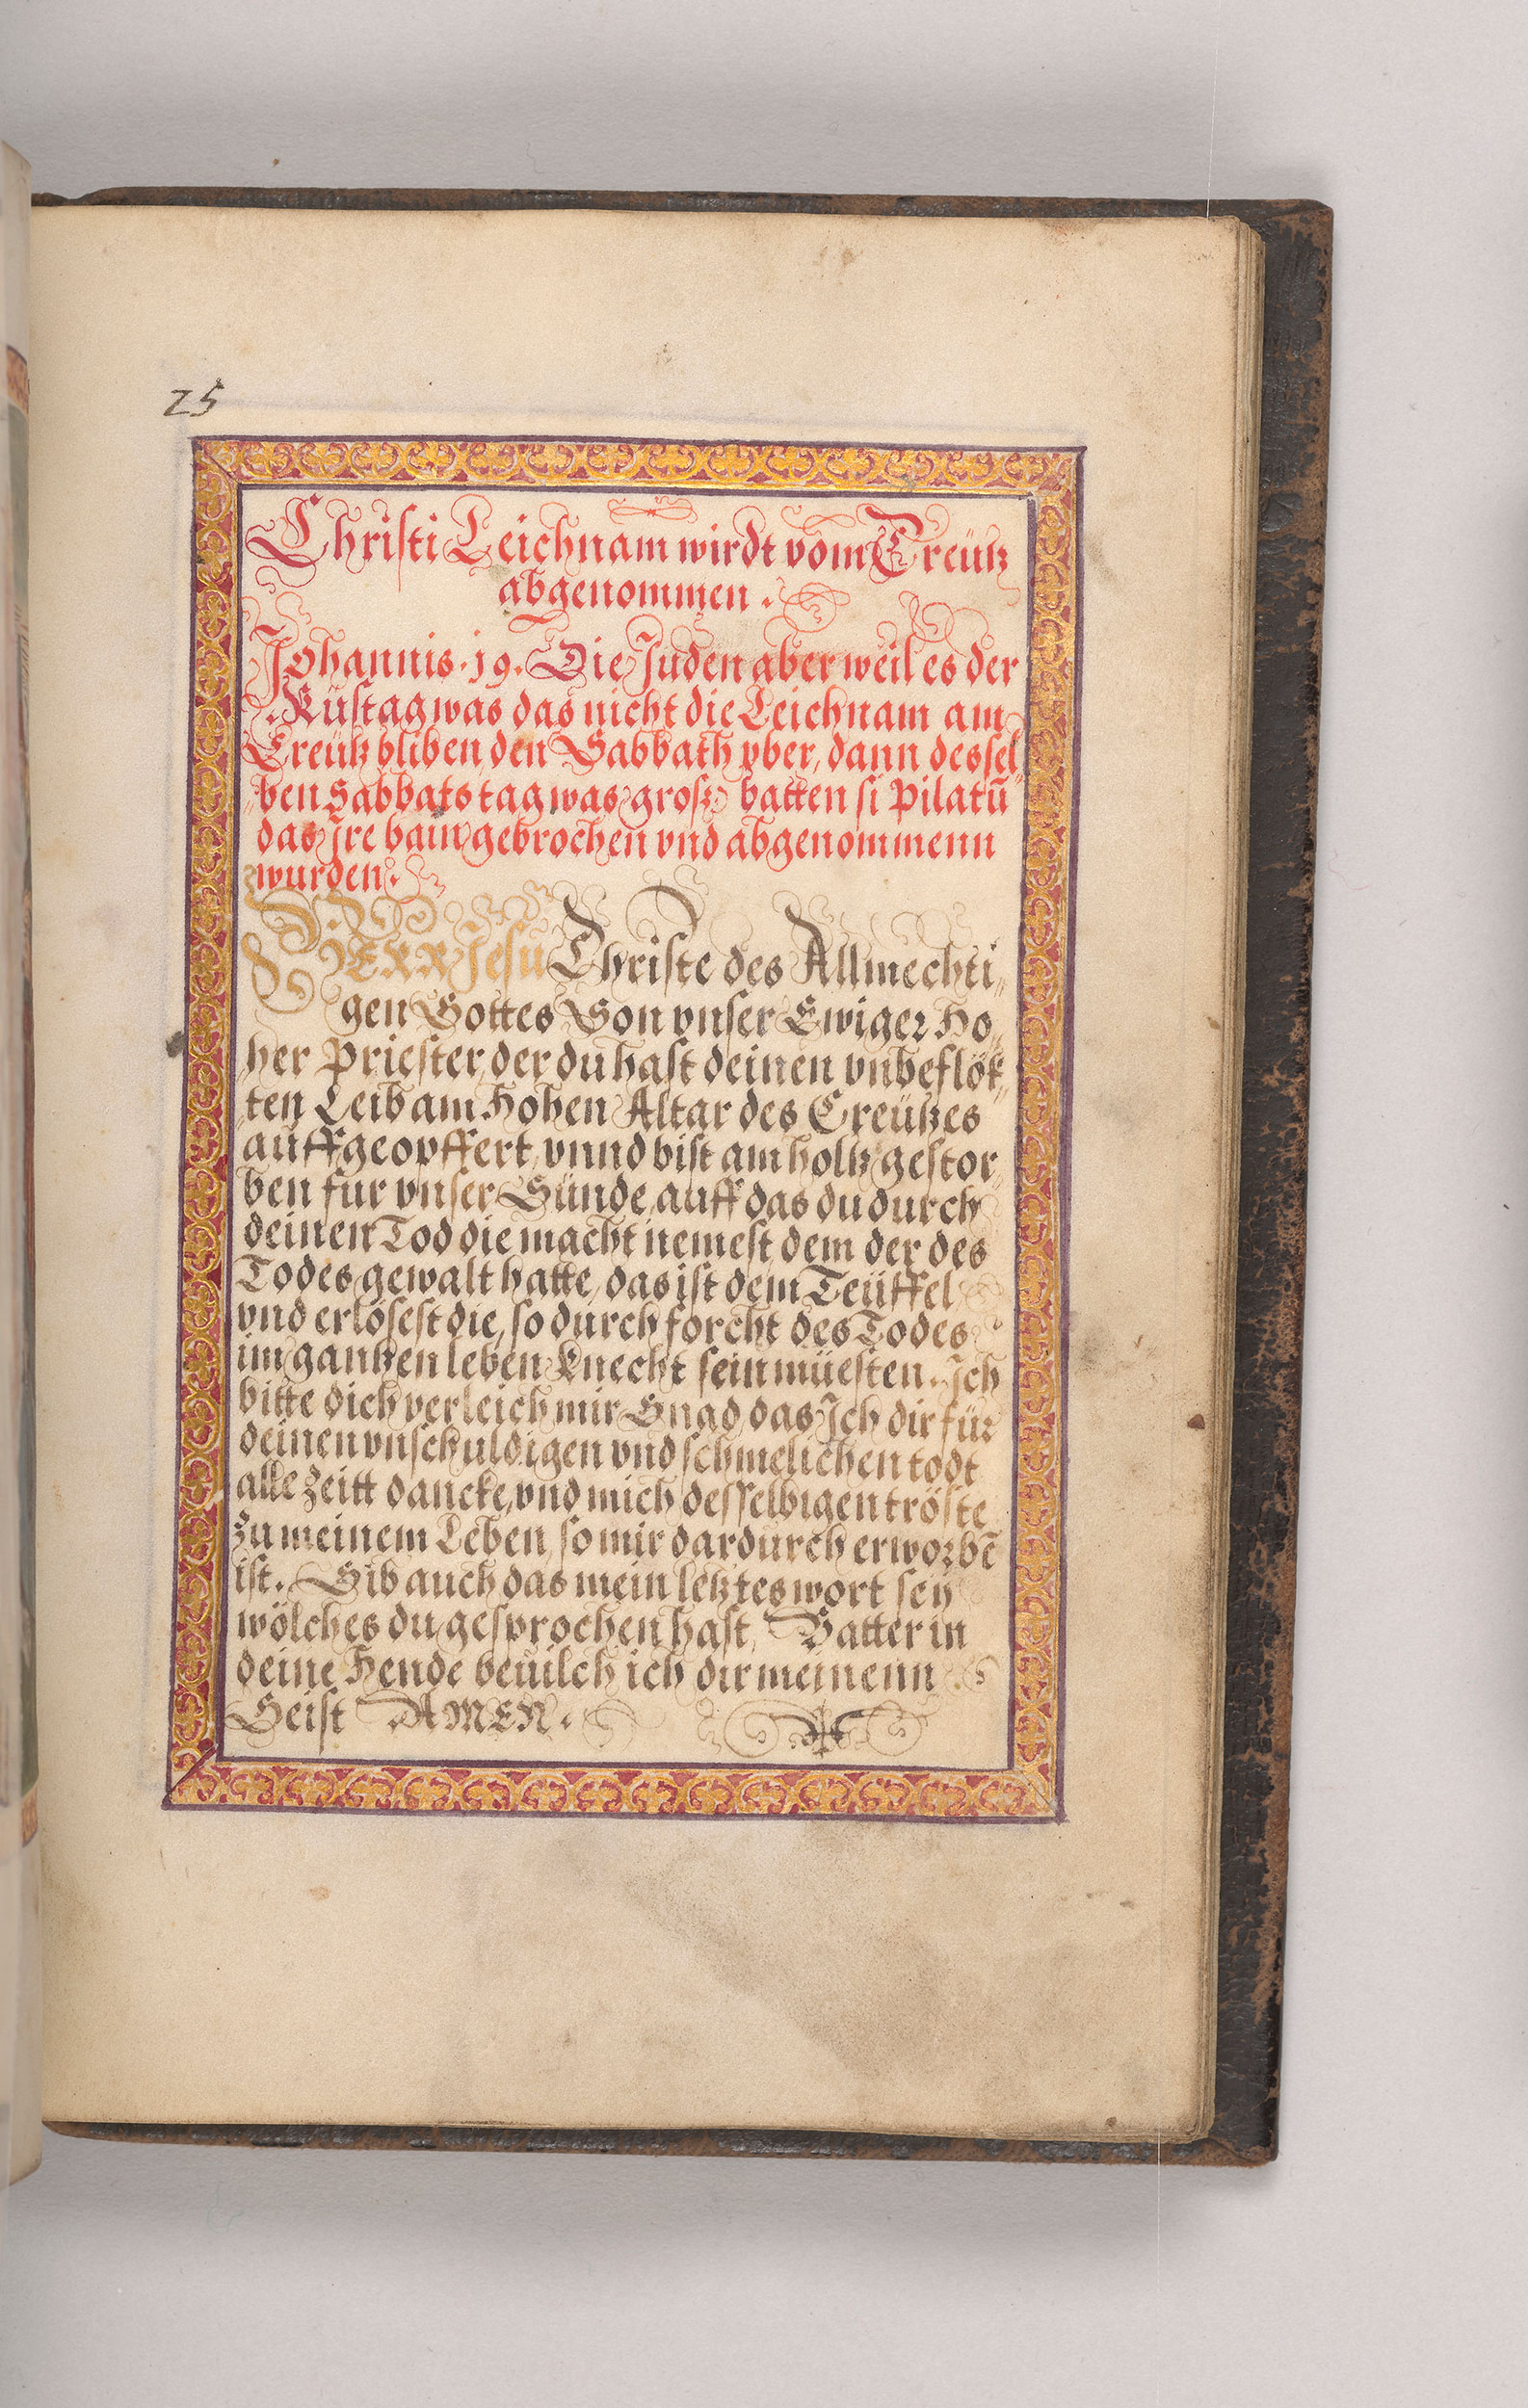 25
Christi Leichnam wirdt vom Creütz
abgenommen.
Johannis .19. Die Juden aber weil es der
Rüstag was das nicht die Leichnam am
Creütz bliben, den Sabbath vber, dann dessel„
„ben Sabbats tag was gros, batten si Pilatū
das Ire bain gebrochen vnd abgenommenn
wurden.
HERR Jesu Christe des Allmechti„
gen Gottes Son vnser Ewiger Ho„
her Priester, der du hast deinen vnbeflök„
„ten Leib am Hohen Altar des Creützes
auffgeopffert, vnnd bist am holtz gestor„
ben fur vnser Sünde, auff das du durch
deinen Tod die macht nemest, dem der des
Todes gewalt hatte, das ist dem Teüffel
vnd erlösest die, so durch forcht des Todes
im gantzen leben Knecht sein müesten. Ich
bitte dich verleich mir Gnad, das Ich dir für
deinen vnschuldigen vnd schmelichen todt
alle Zeitt dancke, vnd mich desselbigen tröste
zu meinem Leben, so mir dardurch erworbē
ist. Gib auch das mein letztes wort sey
wölches du gesprochen hast, Vatter in
deine Hende beuilch ich dir meinenn
Geist AMEN.